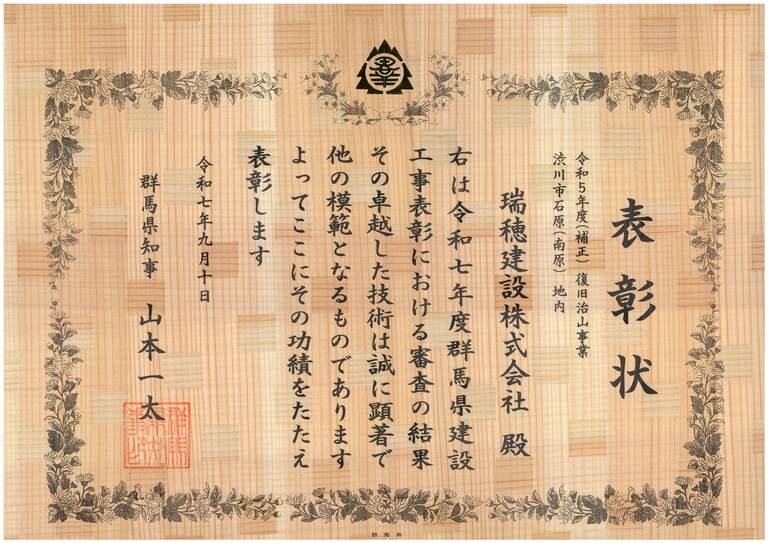 表彰状
令和5年度(補正) 復旧治山事業
渋川市石原(南原) 地内
瑞穂建設株式会社 殿
右は令和七年度群馬県建設
工事表彰における審査の結果
その卓越した技術は誠に顕著で
他の模範となるものであります
よってここにその功績をたたえ
表彰します
令和七年九月十日
群馬県知事 山本一太
群馬県